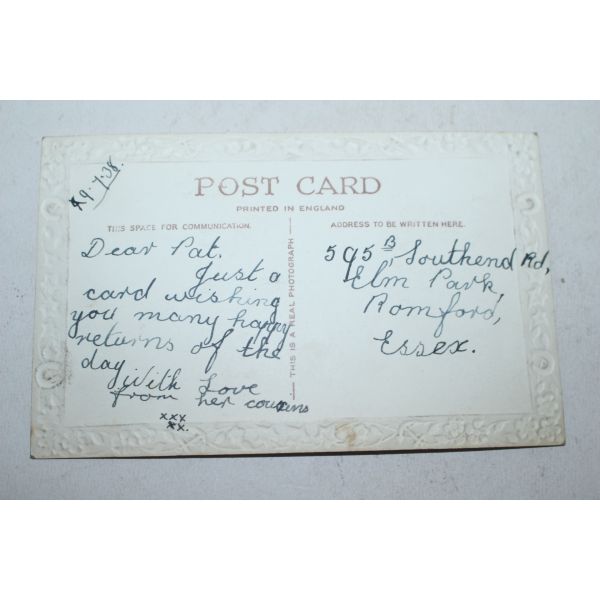 9.7.38.
POST CARD
PRINTED IN ENGLAND
THIS SPACE FOR COMMUNICATION.
ADDRESS TO BE WRITTEN HERE.
Dear Pat.
Just a
card wishing
you many happy
returns of the
day
With Love
from her cousins
xxx
xx.
THIS IS A REAL PHOTOGRAPH
595B Southend Rd,
Elm Park,
Romford,
Essex.